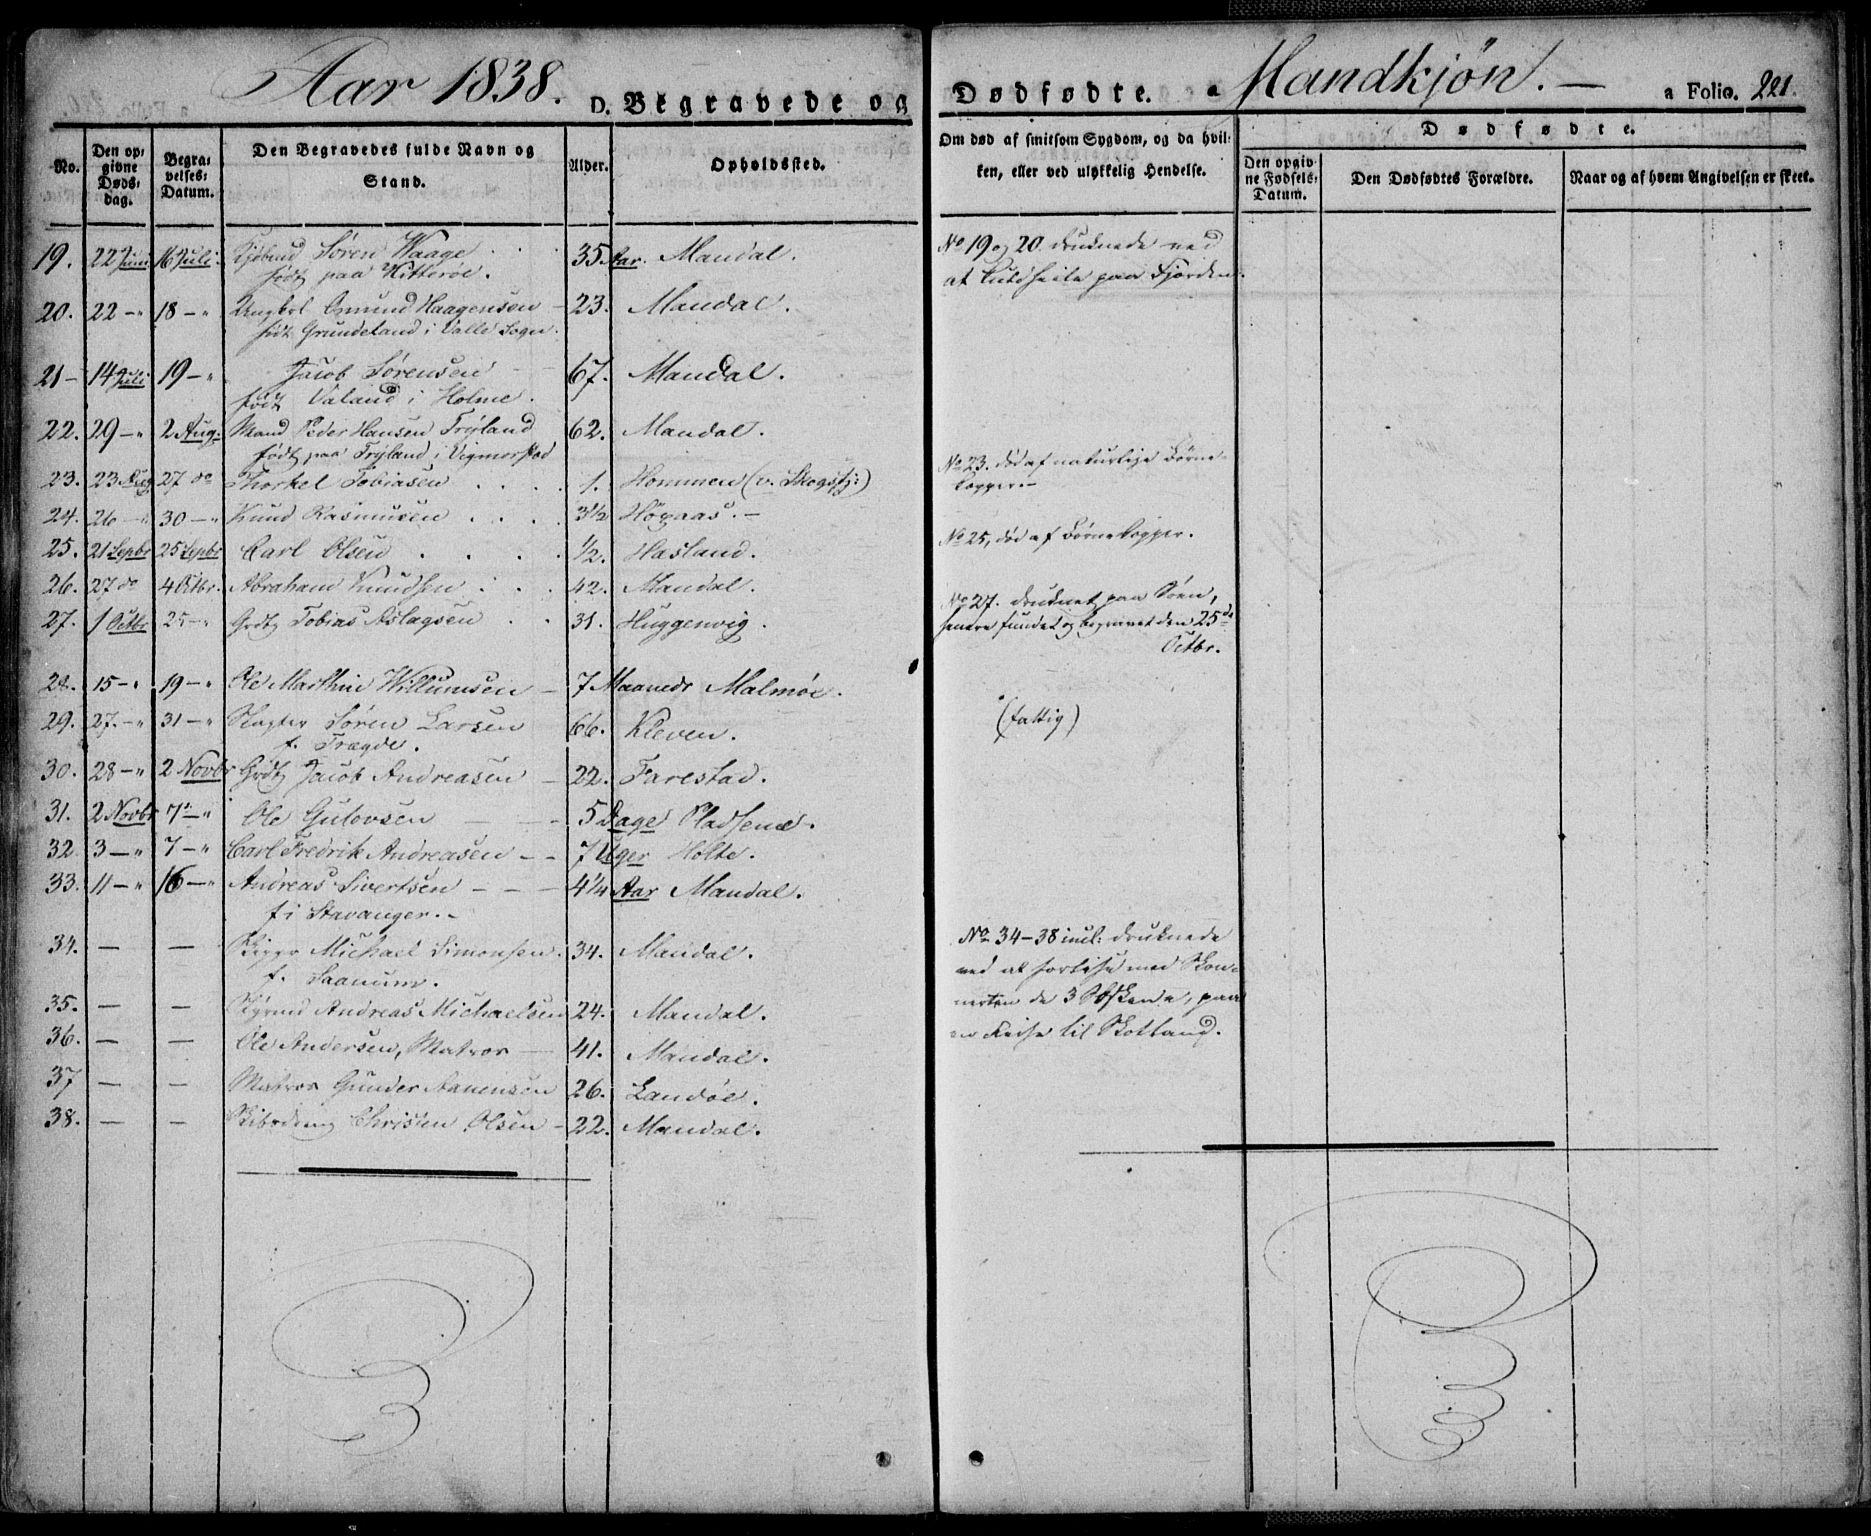 Aar 1838. D. Begravede og Dødfødte. Mandkjøn. — a Folio. 221.
No.
Den op-
givne
Døds-
dag.
Begra-
velses-
Datum.
Den Begravedes fulde Navn og
Stand.
Alder.
Opholdssted.
Om død af smitsom Sygdom, og da hvil-
ken, eller ved ulykkelig Hendelse.
Dødfødte.
Den opgiv-
ne Fødsels-
Datum.
Den Dødfødtes Forældre.
Naar og af hvem Angivelsen er skeet.
19. 22 Juni 16 Juli Søren Waage 35 Aar. Mandal. No 19 og 20 druknede ved
født paa Hitterøe. at paa Fjorden.
20. 22 — " 18 — " Ungkrl Omund Haagensen — 23. Mandal.
født Grundeland i Valle Sogn.
21 — 14 Juli 19 — " Jacob Sørensen 67. Mandal.
født Valand i Holme.
22. 29 — " 2 Aug. Mand Peder Hansen Trÿland 62. Mandal.
født paa Trÿland i Vigmorstad
23. 23 Aug 27 do Thorkel Tobiasen 1. Hommen (v. Skogsfj:) No 23. død af naturlige Børne-
kopper. —
24. 26 — " 30 — " Knud Rasmusen 3½ Høyaas. —
25. 21 Septbr 25 Septbr Carl Olsen ½. Hasland. No 25, død af Børnekopper.
26. 27 do 4 Octbr. Abraham Knudsen 42. Mandal.
27. 1 Octbr 25 — " Grdb Tobias Aslagsen 31. Huggenvig. No 27. druknet paa Søen,
senere fundet og begravet den 25de
Octbr.
28. 15 — " 19 — " Ole Marthin Willumsen — 7 Maaneder Malmøe.
29. 27. — " 31 — " Søren Larsen 66. Kleven. (fattig)
f. Trægde.
30. 28 — " 2 Novbr Grdb Jacob Andreasen — 22. Farestad.
31. 2 Novbr 7 — " Ole Gulovsen — 5 Dage Pladsene.
32. 3 — " 7 — " Carl Fredrik Andreasen — 7 Uger Holte.
33. 11 — " 16 — " Andreas Sivertsen — 4¼ Aar Mandal.
f i Stavanger. —
34. — — Skipper Michael Simonsen. 34. Mandal. No 34–38 incl: druknede
f. Saanum. ved at forlise med Skon-
35. — — Stÿrmd Andreas Michaelsen 24. Mandal. nerten de 3 Søskende, paa
36. — — Ole Andersen, Matros — 41. Mandal. en Reise til Skotland.
37 — — Matros Gunder Aanensen 26. Landøe.
38. — — Christen Olsen — 22. Mandal.